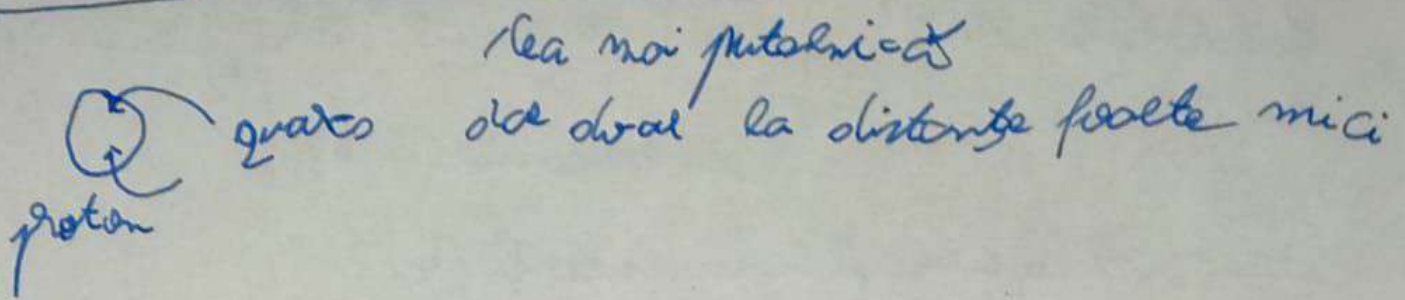 cea mai puternică
quarcs dar doar la distanțe foarte mici
proton